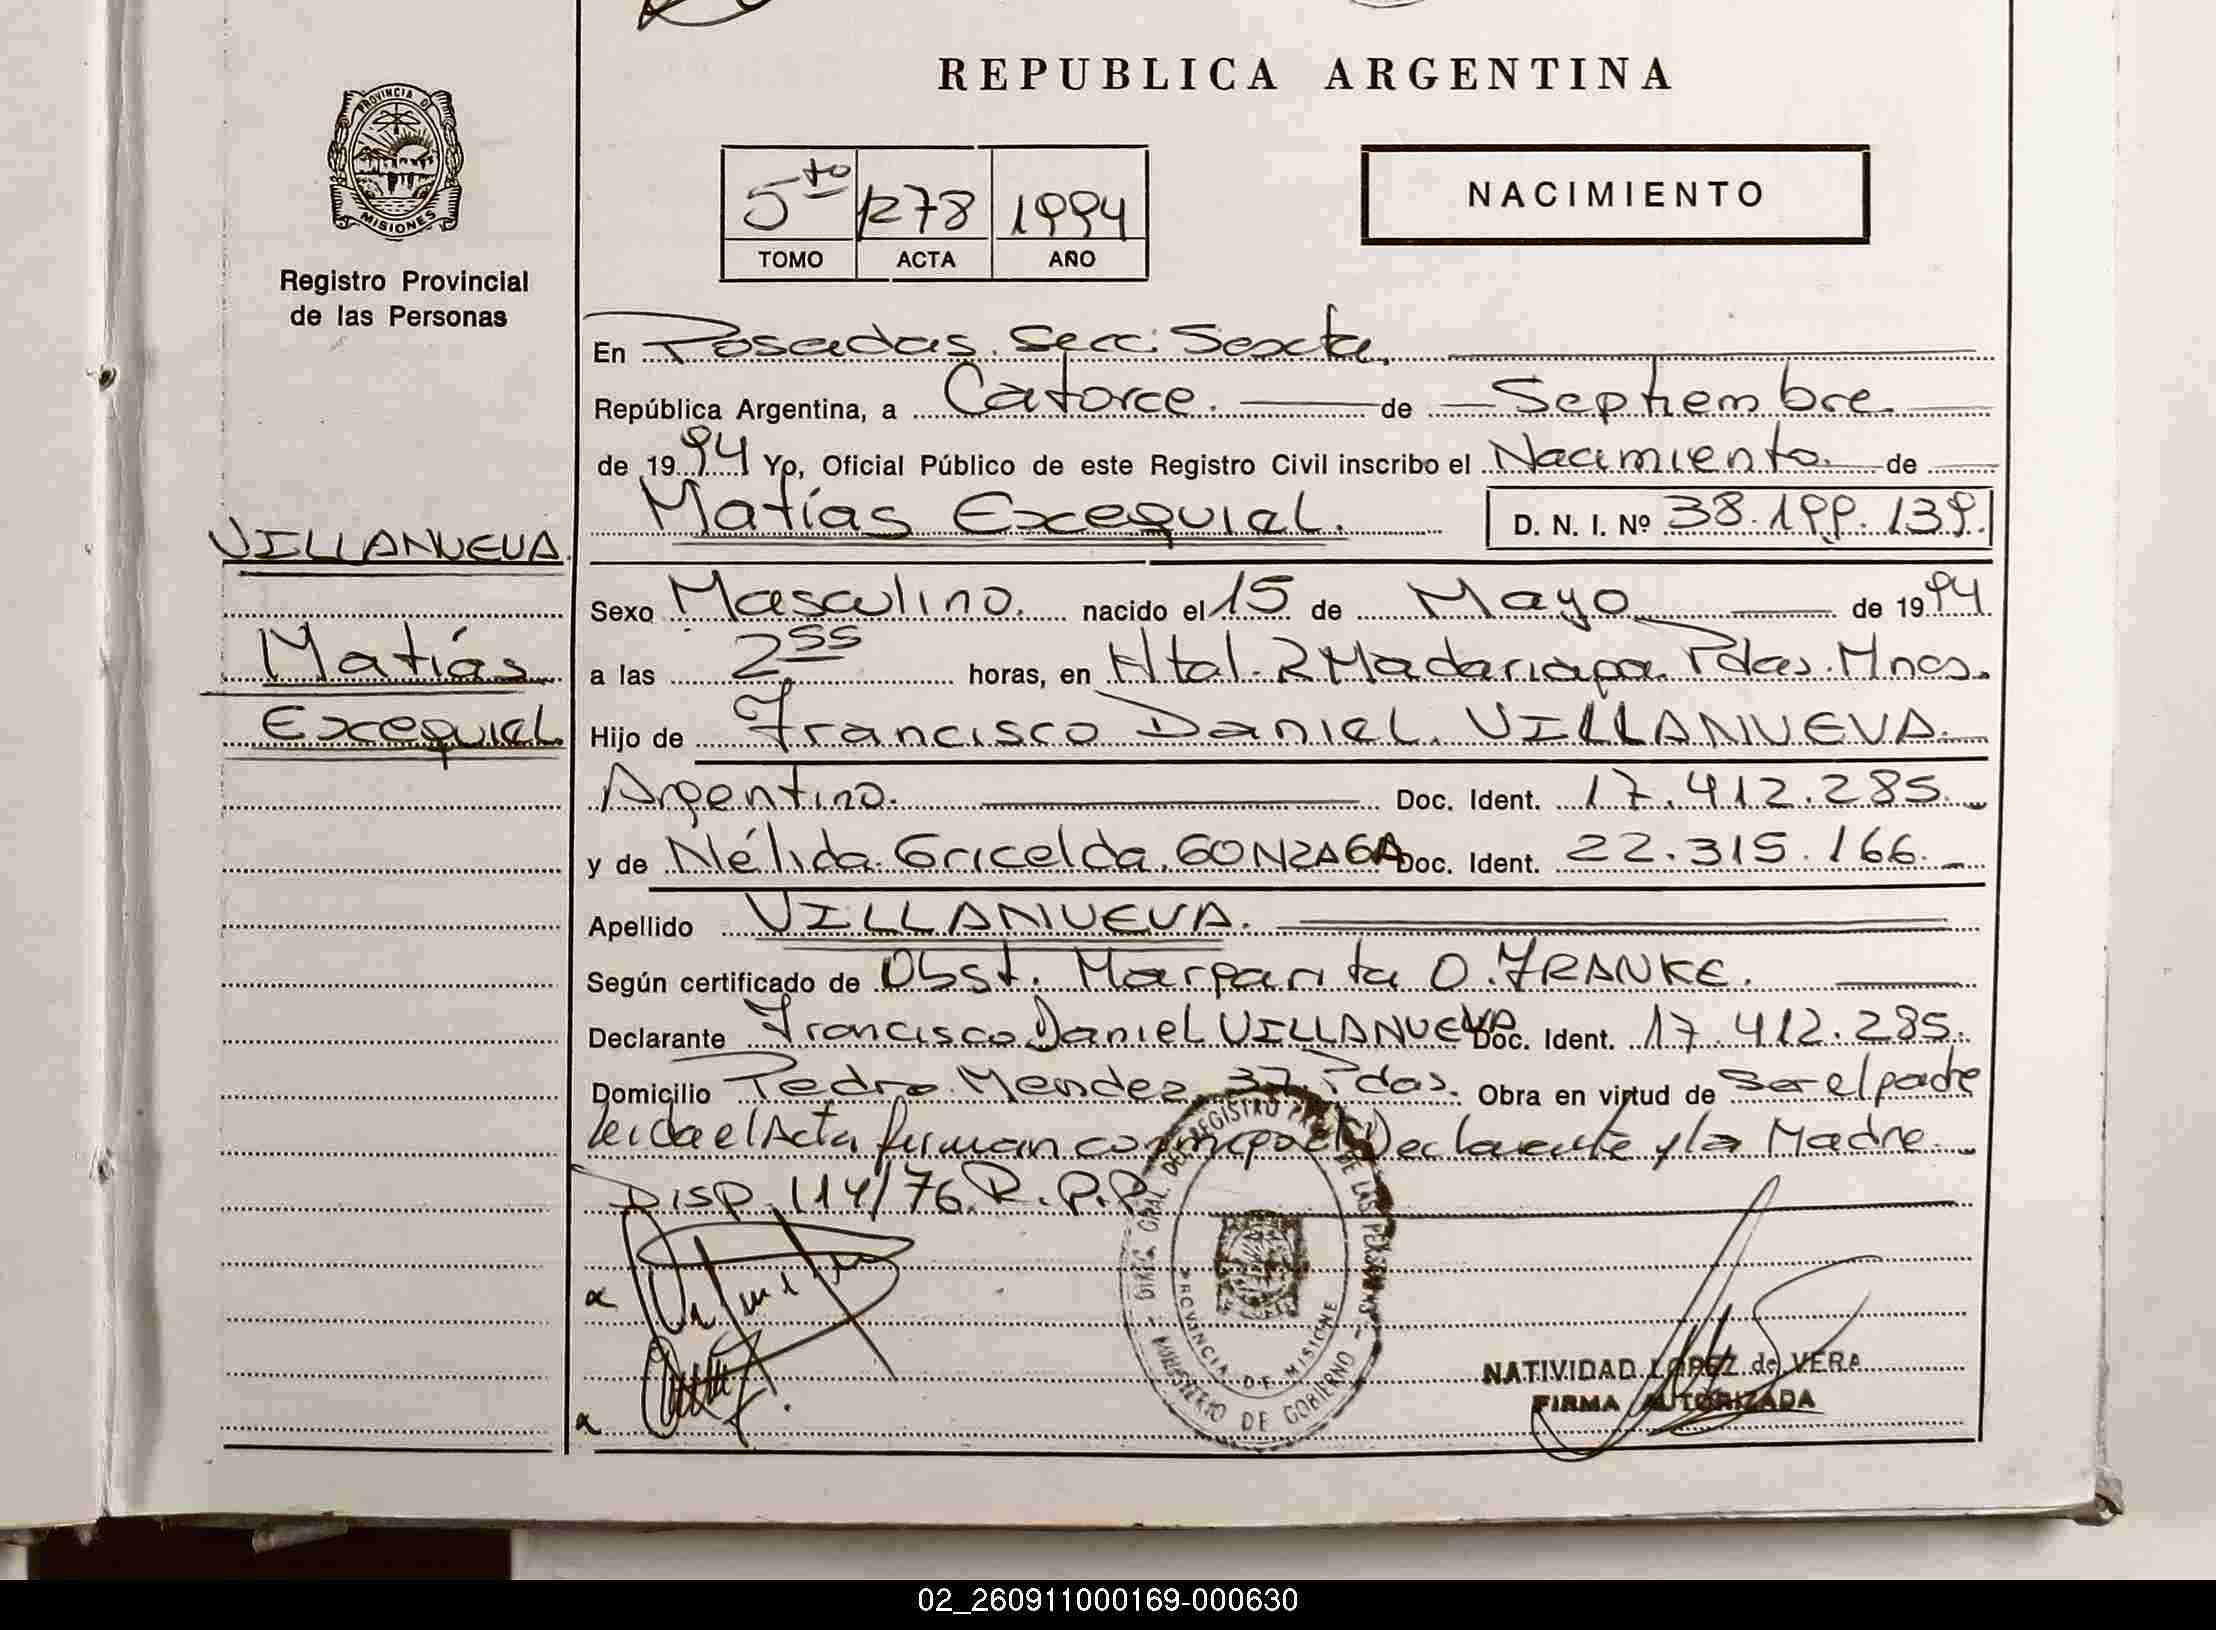 REPUBLICA ARGENTINA
PROVINCIA DE
MISIONES
Registro Provincial
de las Personas
5to 1278 1994
TOMO ACTA AÑO
NACIMIENTO
En Posadas. Secc: Sexta.
República Argentina, a Catorce. de Septiembre
de 1994 Yo, Oficial Público de este Registro Civil inscribo el Nacimiento de
Matías Exequiel. D. N. I. Nº 38.199.139.
VILLANUEVA.
Matías
Exequiel.
Sexo Masculino. nacido el 15 de Mayo de 1994
a las 2 55 horas, en Htal. R Madariaga. Pdas. Mnes.
Hijo de Francisco Daniel. VILLANUEVA.
Argentino. Doc. Ident. 17.412.285.
y de Nélida. Gricelda. GONZAGA Doc. Ident. 22.315.166.
Apellido VILLANUEVA.
Según certificado de Obst. Margarita O. FRANKE.
Declarante Francisco Daniel VILLANUEVA Doc. Ident. 17.412.285.
Domicilio Pedro Mendez 37. Pdas. Obra en virtud de Ser el padre
leida el Acta firman conmigo el Declarante y la Madre.
Disp. 114/76. R.P.P.
DIREC. GRAL. DEL REGISTRO PROVINCIAL DE LAS PERSONAS
PROVINCIA DE MISIONES
MINISTERIO DE GOBIERNO
NATIVIDAD LOPEZ de VERA
FIRMA AUTORIZADA
02_260911000169-000630